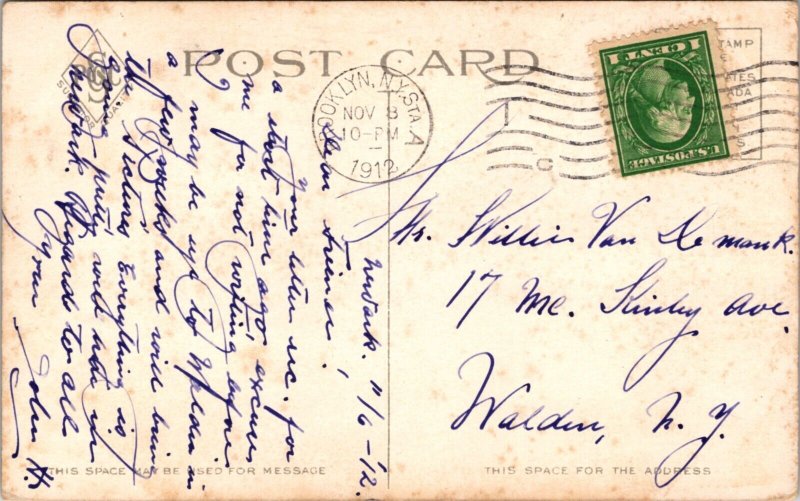 POST CARD
BROOKLYN, N.Y. STA. A
NOV 8
10-PM
1912
1 CENT 1
U.S. POSTAGE
Newark. 11/6-'12.
Dear Friend,
Your letter rec. for
a short time ago excuse
me for not writing before
I may be up to Walden in
a few weeks and will bring
the Pictures Everything is
going pretty well here in
Newark. Regards to all
from
John H.
Mr. Willie Van Demark.
17 Mc. Kinley Ave.
Walden, N. Y.
THIS SPACE MAY BE USED FOR MESSAGE
THIS SPACE FOR THE ADDRESS